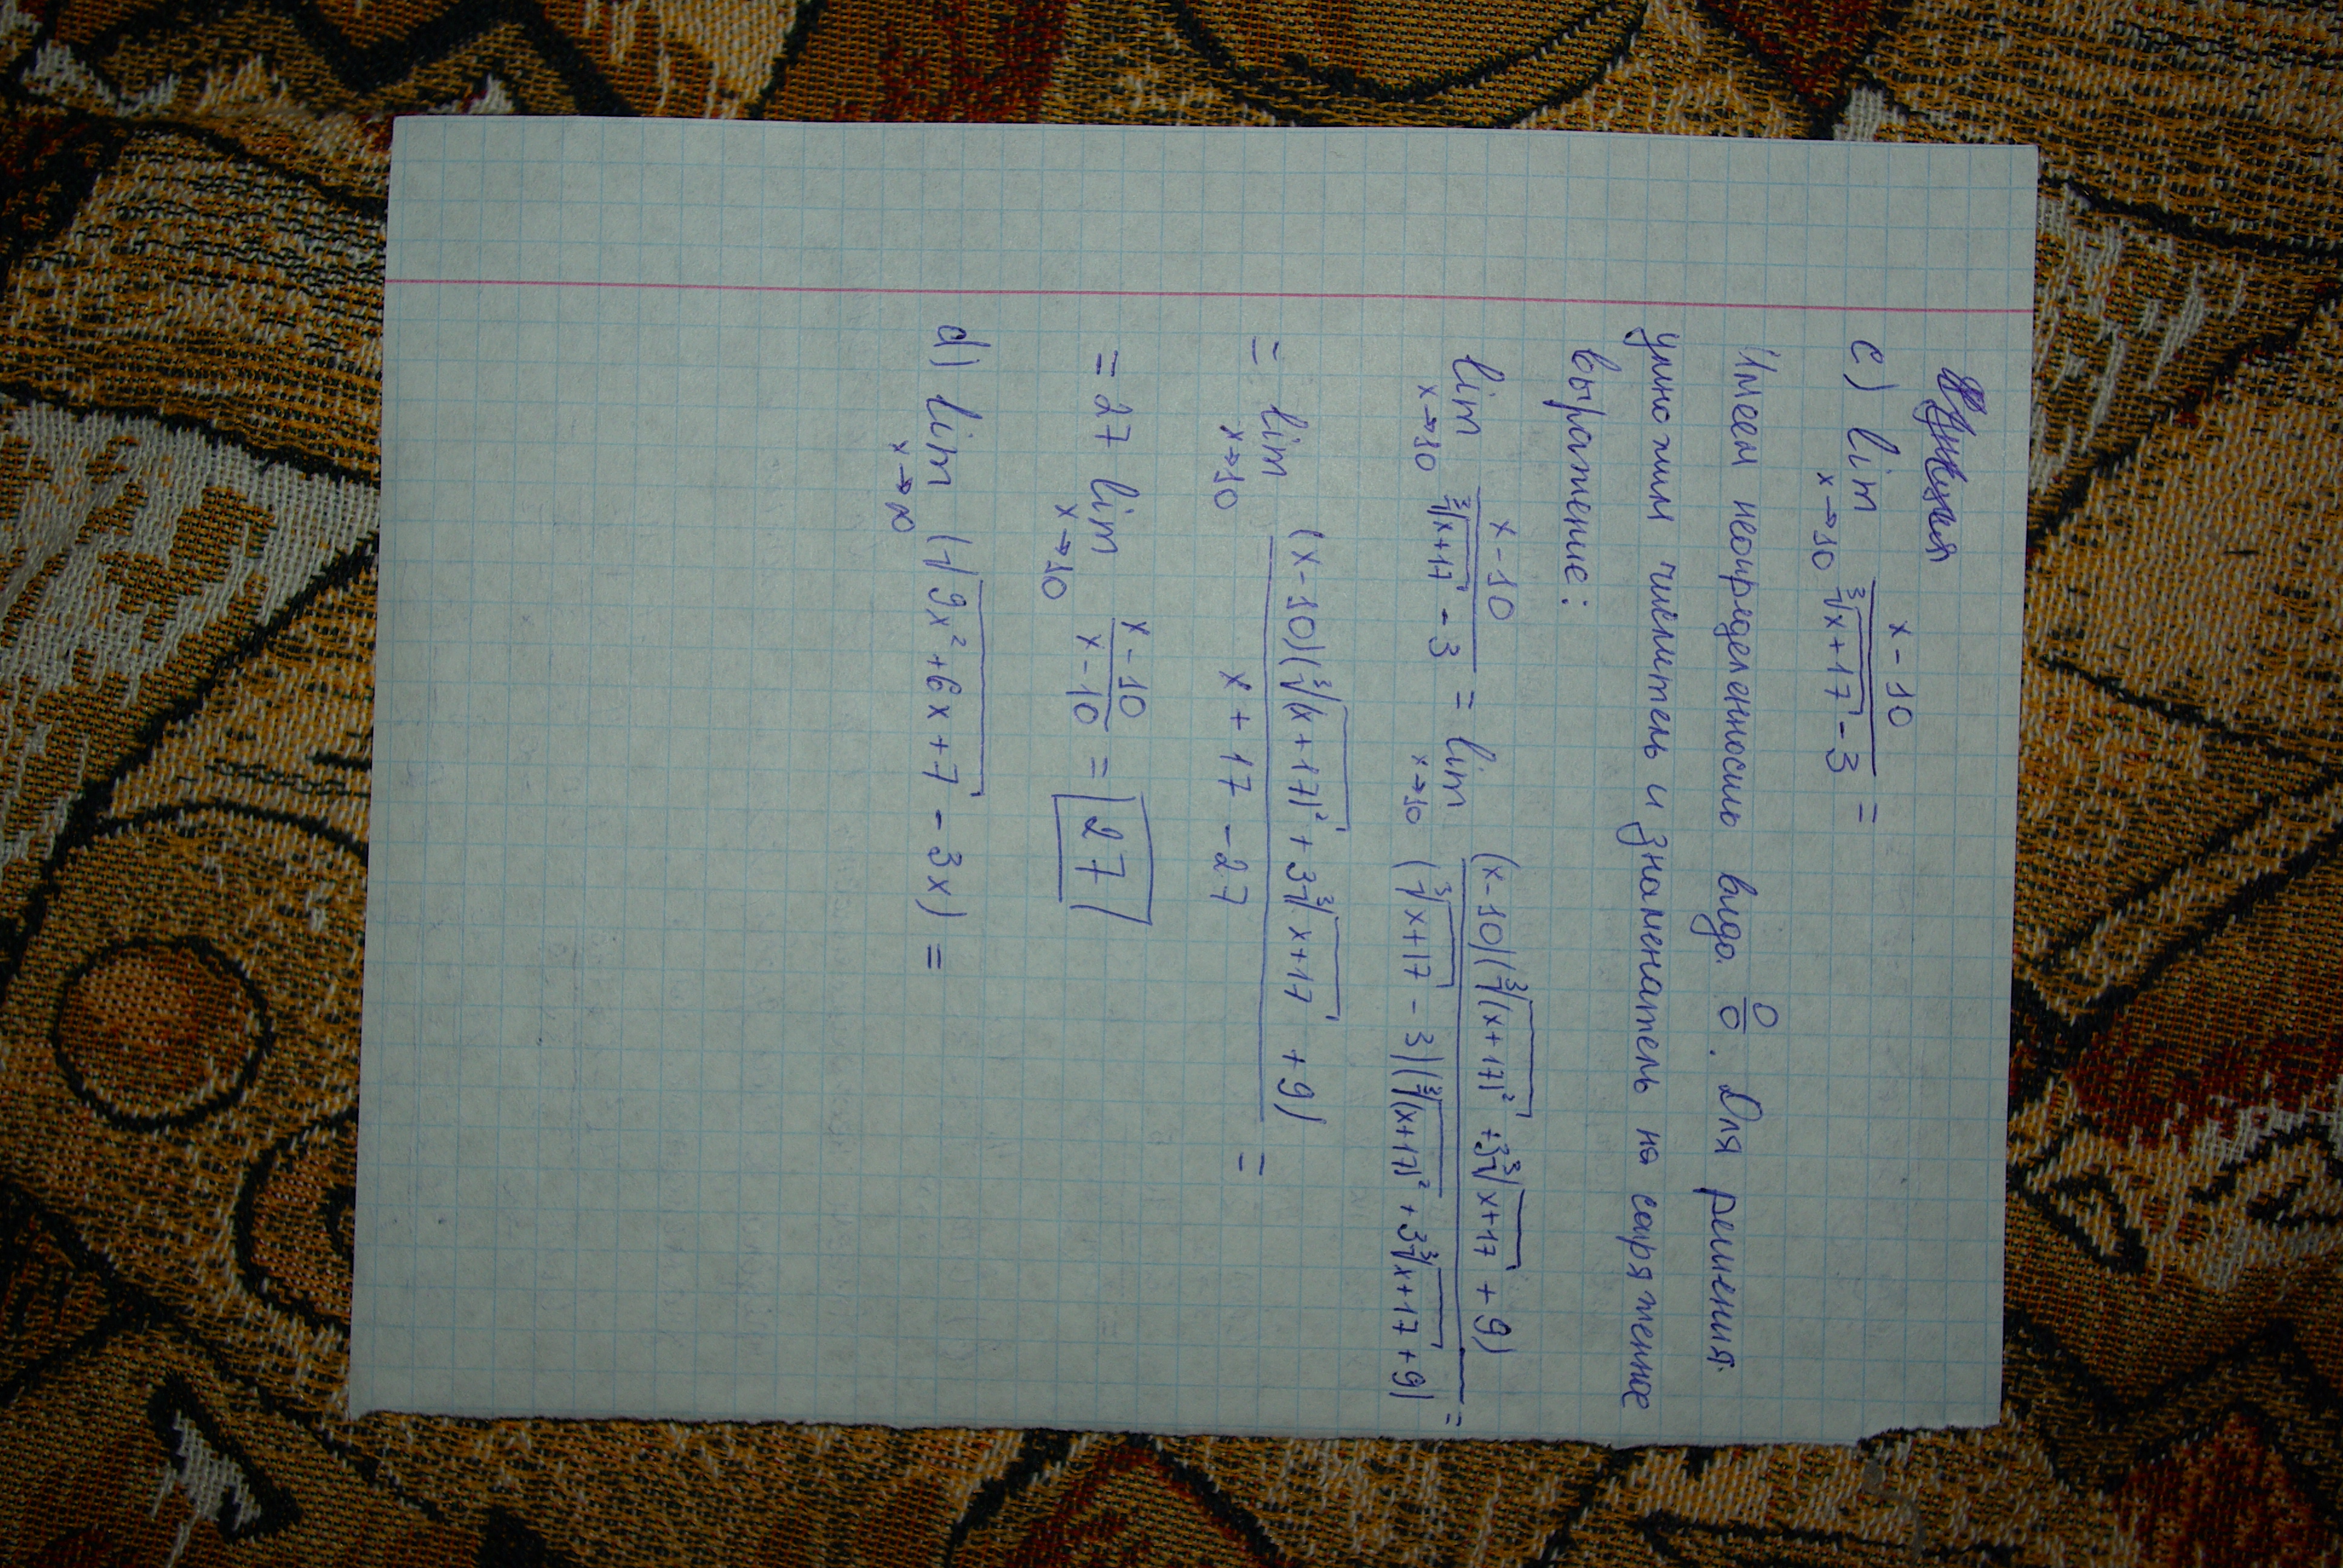 c) lim x→10 (x-10)/(∛(x+17) - 3) =
Имеем неопределенность вида 0/0. Для решения
умножим числитель и знаменатель на сопряженное
выражение:
lim x→10 (x-10)/(∛(x+17) - 3) = lim x→10 ((x-10)(∛(x+17)² + 3∛(x+17) + 9))/((∛(x+17) - 3)(∛(x+17)² + 3∛(x+17) + 9)) =
= lim x→10 ((x-10)(∛(x+17)² + 3∛(x+17) + 9))/(x+17-27) =
= 27 lim x→10 (x-10)/(x-10) = 27
d) lim x→∞ (√(9x²+6x+7) - 3x) =